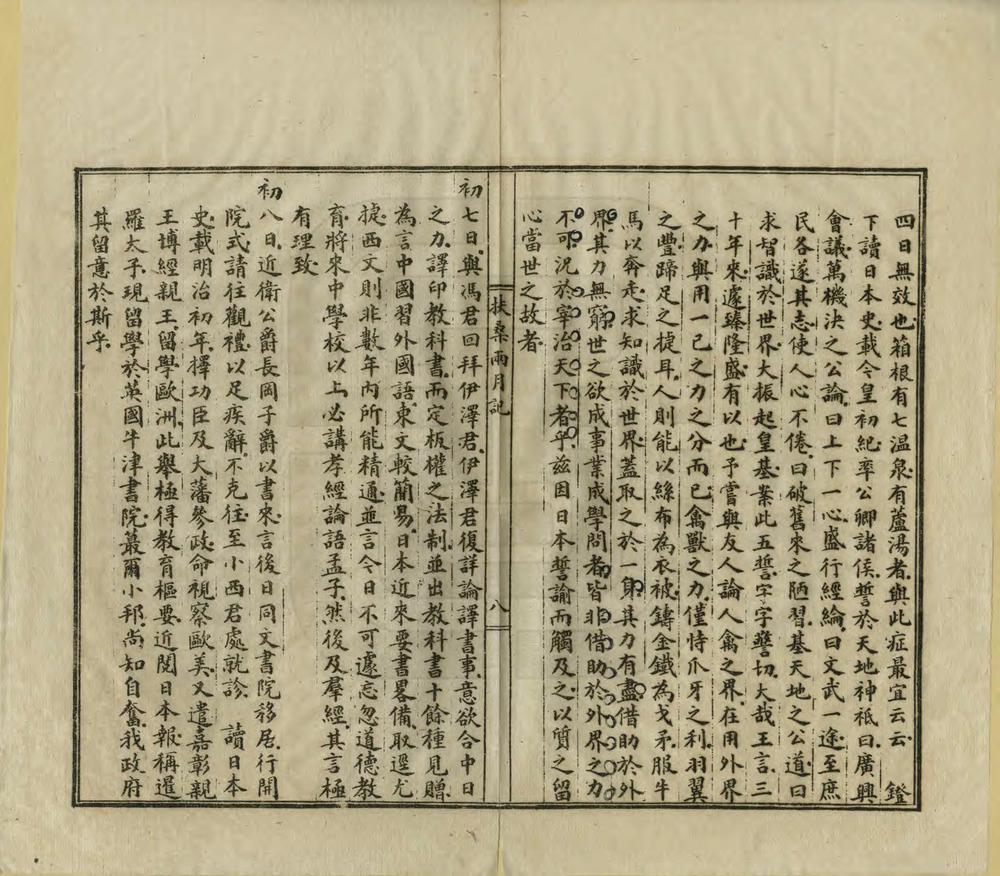 四日無效也箱根有七温泉有蘆湯者與此症最宜云云　鐙
下讀日本史載今皇初紀率公卿諸侯誓於天地神祗曰廣興
會議萬機決之公論曰上下一心盛行經綸曰文武一途至庶
民各遂其志使人心不倦曰破舊來之陋習基天地之公道曰
求智識於世界大振起皇基案此五誓字字警切大哉王言三
十年來遽臻隆盛有以也予嘗與友人論人禽之界在用外界
之力與用一己之力之分而已禽獸之力僅恃爪牙之利羽翼
之豐蹄足之捷耳人則能以絲布為衣被鑄金鐵為戈矛服牛
馬以奔走求知識於世界蓋取之於一身其力有盡借助於外
界其力無窮世之欲成事業成學問者皆非借助於外界之力
不可況於宰治天下者乎茲因日本誓諭而觸及之以質之留
心當世之故者
扶桑兩月記
八
初七日與馮君回拜伊澤君伊澤君復詳論譯書事意欲合中日
之力譯印教科書而定板權之法制並出教科書十餘種見贈
為言中國習外國語東文較簡易日本近來要書畧備取逕尤
捷西文則非數年內所能精通並言今日不可遽忘忽道德教
育將來中學校以上必講孝經論語孟子然後及羣經其言極
有理致
初八日近衛公爵長岡子爵以書來言後日同文書院移居行開
院式請往觀禮以足疾辭不克往至小西君處就診　讀日本
史載明治初年擇功臣及大藩參政命視察歐美又遣嘉彰親
王博經親王留學歐洲此舉極得教育樞要近閱日本報稱暹
羅太子現留學於英國牛津書院蕞爾小邦尚知自奮我政府
其留意於斯乎